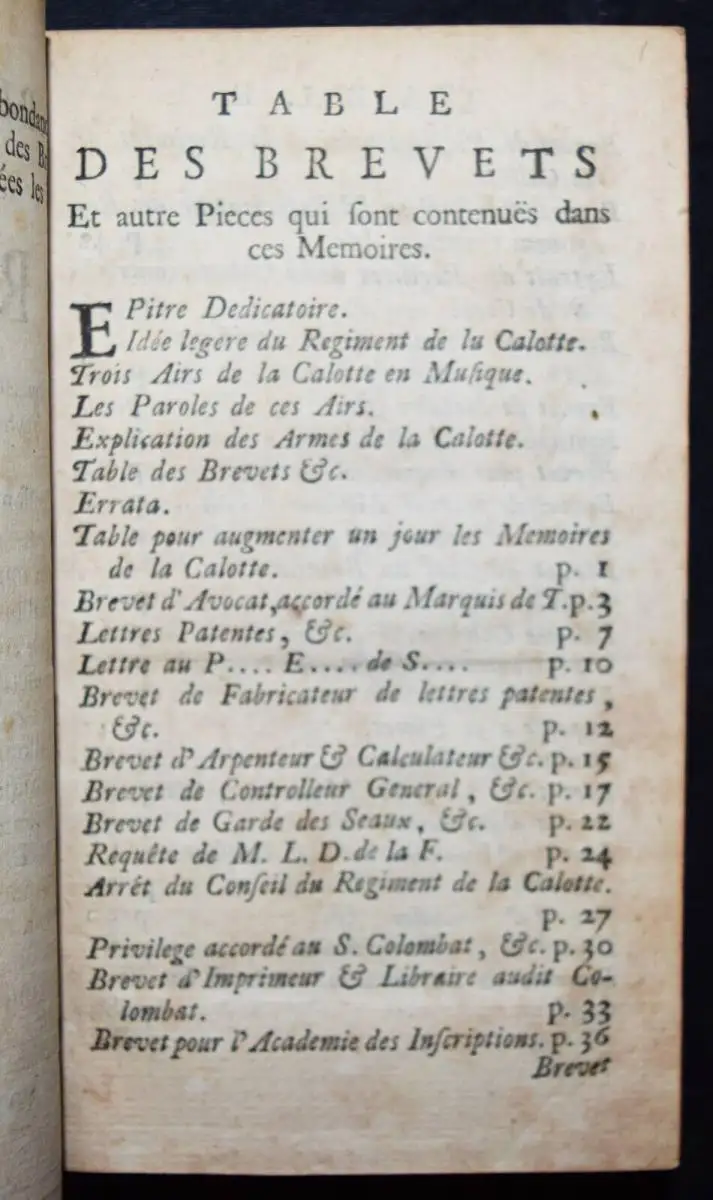 bondan
des B
ées les
R
TABLE
DES BREVETS
Et autre Pieces qui ſont contenuës dans
ces Memoires.
EPitre Dedicatoire.
Idée legere du Regiment de lu Calotte.
Trois Airs de la Calotte en Muſique.
Les Paroles de ces Airs.
Explication des Armes de la Calotte.
Table des Brevets &c.
Errata.
Table pour augmenter un jour les Memoires
de la Calotte. p. 1
Brevet d'Avocat, accordé au Marquis de T. p. 3
Lettres Patentes, &c. p. 7
Lettre au P.... E.... de S.... p. 10
Brevet de Fabricateur de lettres patentes,
&c. p. 12
Brevet d'Arpenteur & Calculateur &c. p. 15
Brevet de Controlleur General, &c. p. 17
Brevet de Garde des Seaux, &c. p. 22
Requête de M. L. D. de la F. p. 24
Arrêt du Conſeil du Regiment de la Calotte.
p. 27
Privilege accordé au S. Colombat, &c. p. 30
Brevet d'Imprimeur & Libraire audit Co-
lombat. p. 33
Brevet pour l'Academie des Inſcriptions. p. 36
Brevet